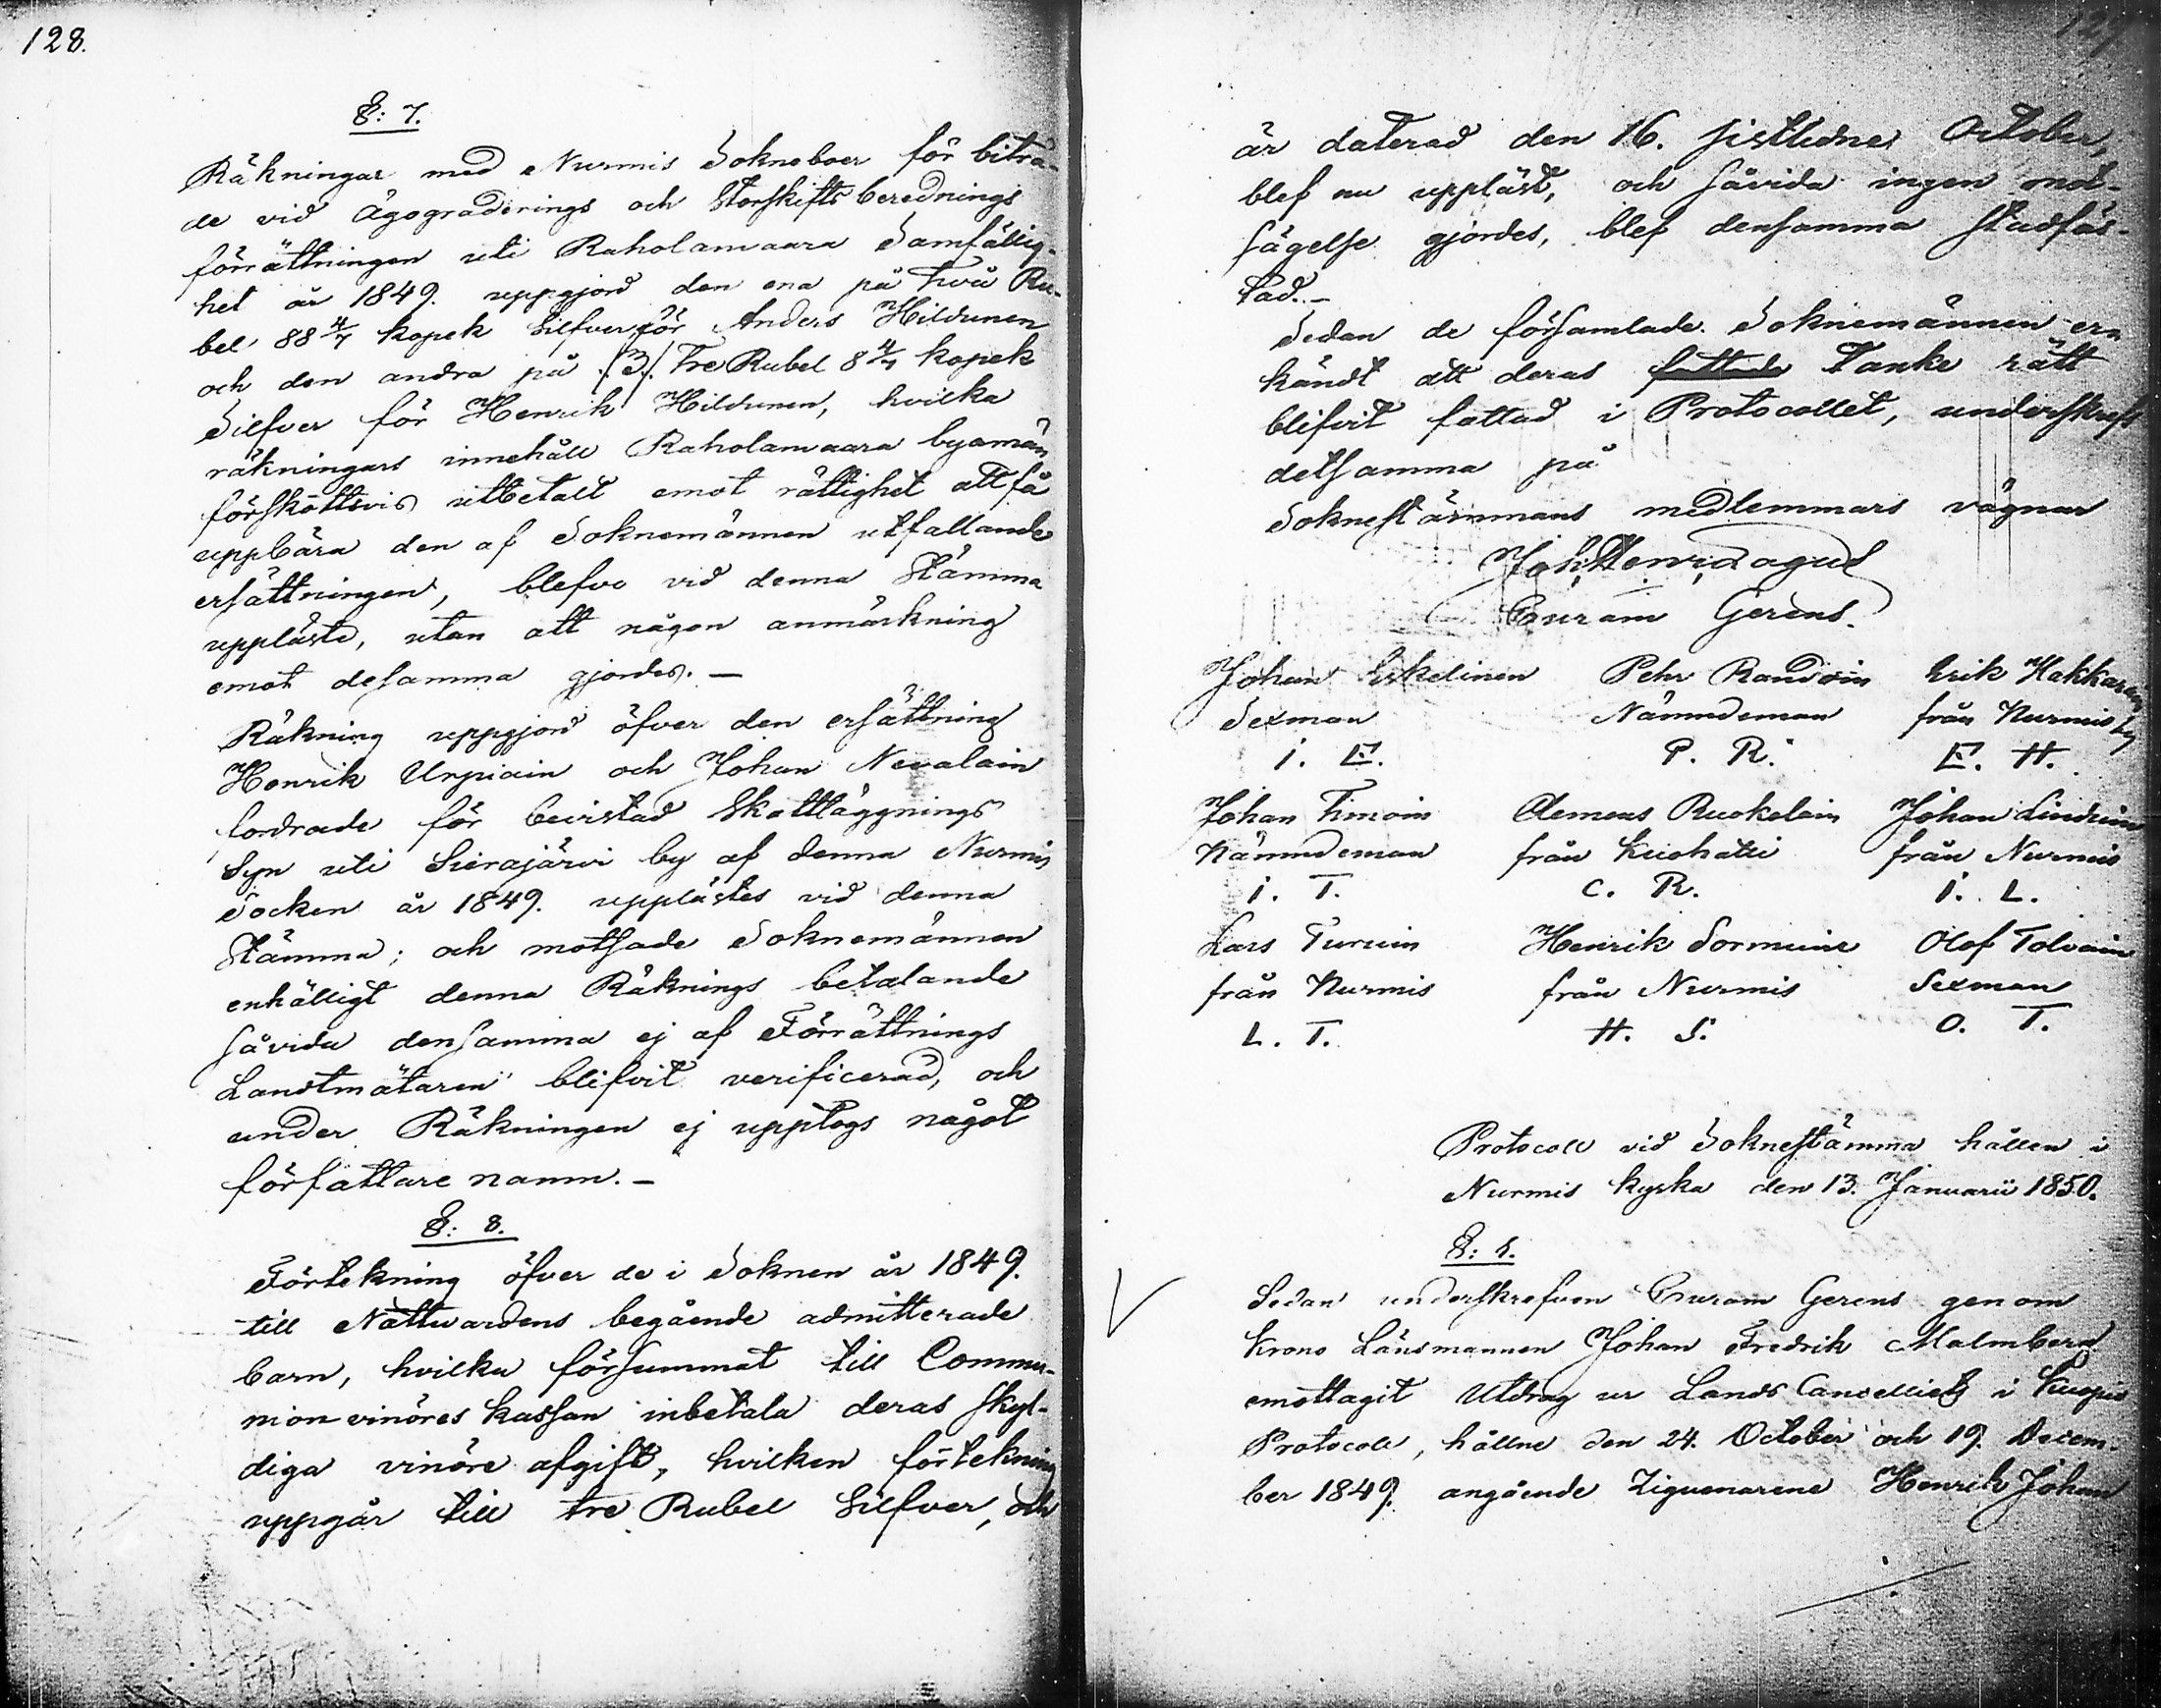 128.
§: 7.
Räkningar med Nurmis Sokneboer för biträ-
de vid Ägograderings och Storskifts berednings
förrättningen uti Raholanvaara Samfällig-
het år 1849. uppgjord den ena på två Ru-
bel 88 4/7 kopek Silfver för Anders Hildunen
och den andra på /3/. Tre Rubel 8 4/7 kopek
Silfver för Henrik Hildunen, hvilka
räkningars innehåll Raholanvaara byamän
förskottsvis utbetalt emot rättighet att få
uppbära den af Soknemännen utfallande
ersättningen, blefvo vid denna Stämma
uppläste, utan att någon anmärkning
emot desamma gjordes. —
Räkning uppgjord öfver den ersättning
Henrik Urpiain och Johan Nevalain
fordrade för bevistad Skattläggnings
Syn uti Sierajärvi by af denna Nurmis
Socken år 1849. upplästes vid denna
Stämma; och motsade Soknemännen
enhälligt denna Räknings betalande
såvida densamma ej af Förrättnings
Landtmätaren blifvit verificerad, och
under Räkningen ej upptogs något
författare namn. —
§: 8.
Förtekning öfver de i Soknen år 1849.
till Nattvardens begående admitterade
barn, hvilka försummat till Commu-
nionvinöres kassan inbetala deras skyl-
diga vinöre afgift, hvilken förtekning
uppgår till tre Rubel Silfver, och
är daterad den 16. sistlidne October,
blef nu uppläst, och såvida ingen mot-
sägelse gjordes, blef densamma stadfäs-
tad. —
Sedan de församlade Soknemännen er-
kändt att deras fattade Tanke rätt
blifvit fattad i Protocollet, underskrefs
detsamma på
Soknestämmans medlemmars vägnar
Joh: Henr:
Curam Gerens.
Johan Eskelinen Pehr Randoin Erik Hakkarain
Sexman Nämndeman från Nurmis by
I. E. P. R. E. H.
Johan Timoin Clemens Ruokolain Johan
Nämndeman från Kuohatti från Nurmis
I. T. C. R. I. L.
Lars Turuin Henrik Sormuine Olof Tolvain
från Nurmis från Nurmis Sexman
L. T. H. S. O. T.
Protocoll vid Soknestämma hållen i
Nurmis kyrka den 13. Januarii 1850.
§: 1.
Sedan underskrefven Curam Gerens genom
Krono Länsmannen Johan Fredrik Malmberg
emottagit Utdrag ur Lands Cancelliets i Kuopio
Protocoll, hållne den 24. October och 19. Decem-
ber 1849. angående Ziguenarene Henrik Johan